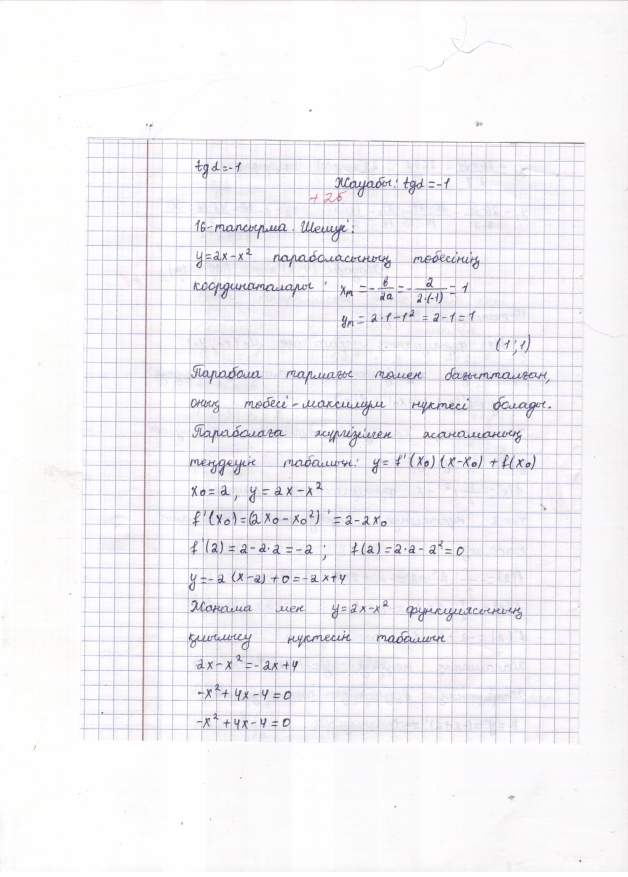 tgα=-1
Жауабы: tgα=-1
+2б
16-тапсырма. Шешуі:
y=2x-x² параболасының төбесінің
координаталары: xₘ = -b/2a = -2/(2·(-1)) = 1
yₘ = 2·1-1² = 2-1=1
(1;1)
Парабола тармағы төмен бағытталған,
оның төбесі - максимум нүктесі болады.
Параболаға жүргізілген жанаманың
теңдеуін табамын: y=f'(x₀)(x-x₀)+f(x₀)
x₀=2, y=2x-x²
f'(x₀)=(2x₀-x₀²)'=2-2x₀
f'(2)=2-2·2=-2; f(2)=2·2-2²=0
y=-2(x-2)+0=-2x+4
Жанама мен y=2x-x² функциясының
қиылысу нүктесін табамын
2x-x²=-2x+4
-x²+4x-4=0
-x²+4x-4=0